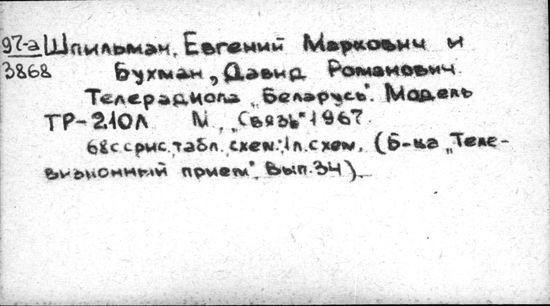 97-а Шпильман, Евгений Маркович и
3868 Бухман, Давид Романович.
Телерадиола „Беларусь". Модель
ТР-210Л М., „Связь" 1967.
68с.с рис., табл., схем.; 1л.схем. (Б-ка „Теле-
визионный прием". Вып.34).